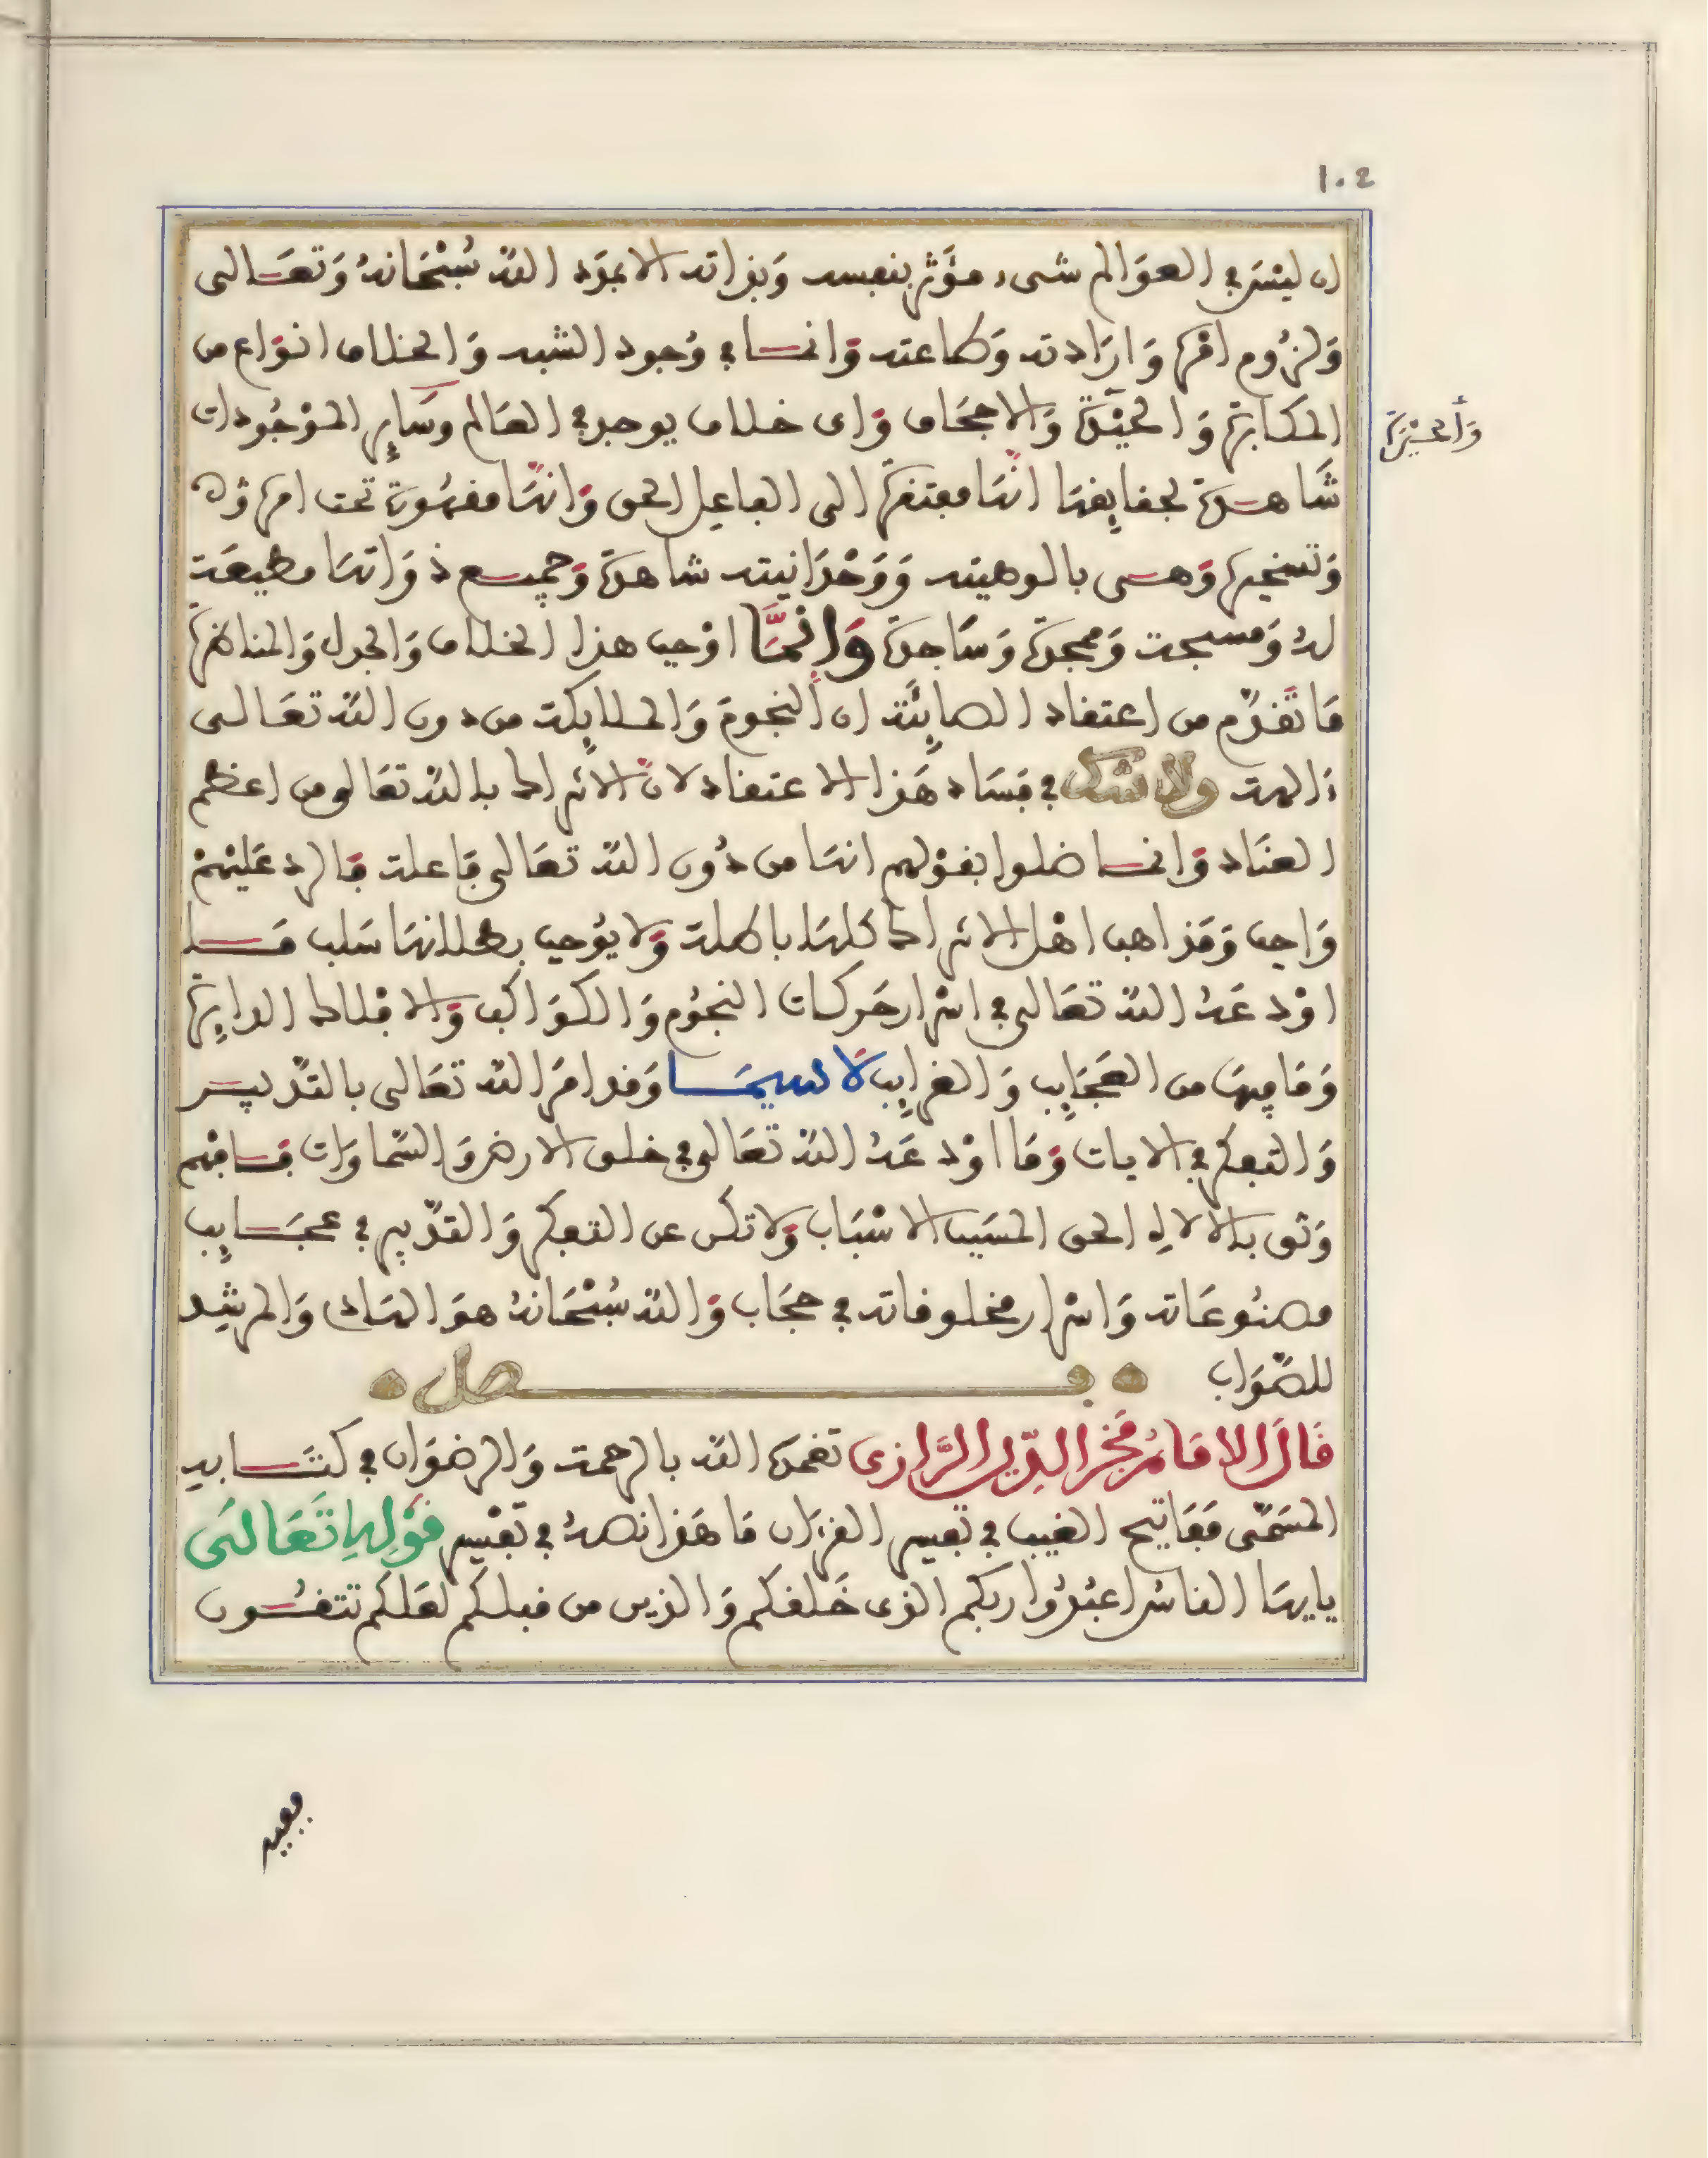 1.2
ان ليس في العوالم شيء مؤثر بنفسه وبذاته الا بقوة الله سبحانه وتعالى
ولزوم امره وارادته وطاعته وانما في وجود الشبه والخلاف انواع من
المكابرة والحيدة والاجحاف واى خلاف يوجد في العالم وساير الموجودات
وألحيرة
شاهدة بحقايقها انها مفتقرة الى الفاعل الحق وانها مقهورة تحت امره
وتسخيره وهي بالوهيته ووحدانيته شاهدة وجميع ذواتها مطيعة
له ومسبحة وممجدة وساجدة وانما اوجب هذا الخلاف والجدل والمناظرة
ما تقدم من اعتقاد الصابئة ان النجوم والملايكة من دون الله تعالى
ءالهة ولا شك في فساد هذا الاعتقاد لان الاشراك بالله تعالى من اعظم
العناد وانما ضلوا بقولهم انها من دون الله تعالى فاعلة فالرد عليهم
واجب ومذاهب اهل الاشراك كلها باطلة ولا يوجب بطلانها سلب ما
اودعه الله تعالى في اسرار حركات النجوم والكواكب والافلاك الدايرة
وما فيها من العجايب والغرايب لا سيما وقد امر الله تعالى بالتدبير
والتفكر في الايات وما اودعه الله تعالى في خلق الارض والسماوات فافهم
وثق بالاله الحق المسبب الاسباب ولا تكن عن التفكر والتدبير في عجايب
مصنوعاته واسرار مخلوقاته في حجاب والله سبحانه هو الهادي والمرشد
للصواب
فصل
قال الامام فخر الدين الرازي تغمده الله بالرحمة والرضوان في كتابه
المسمى مفاتيح الغيب في تفسير القرءان ما هذا نصه في تفسير قوله تعالى
يايها الناس اعبدوا ربكم الذي خلقكم والذين من قبلكم لعلكم تتقون
ففيه